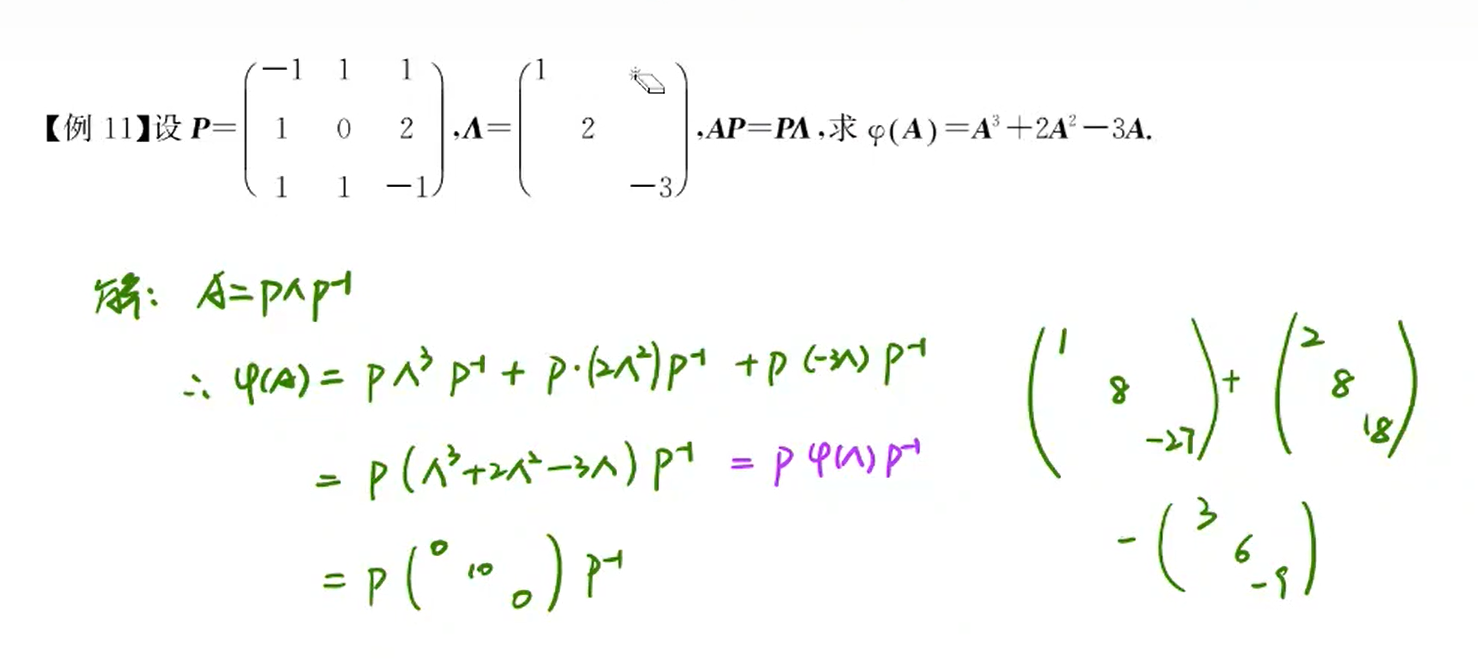 【例 11】设 P=(−1 1 1; 1 0 2; 1 1 −1), Λ=(1; 2; −3), AP=PΛ, 求 φ(A)=A³+2A²−3A.
解: A=PΛP⁻¹
∴ φ(A) = PΛ³P⁻¹ + P·(2Λ²)P⁻¹ + P(-3Λ)P⁻¹
= P(Λ³+2Λ²-3Λ)P⁻¹ = Pφ(Λ)P⁻¹
= P(0 10 0)P⁻¹
(1 8 -27) + (2 8 18)
- (3 6 -9)